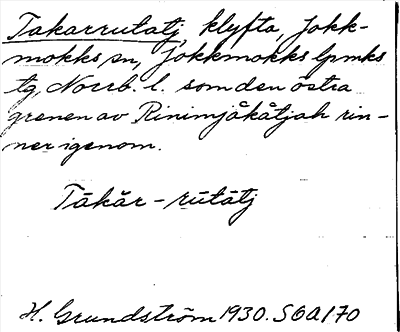 Takarrutatj, klyfta, Jokk-
mokks sn, Jokkmokks lpmks
tg, Norrb. l. som den östra
grenen av Rinimjåkåtjah rin-
ner igenom.
Tākăr - rūtātj
H. Grundström 1930. SOA 170